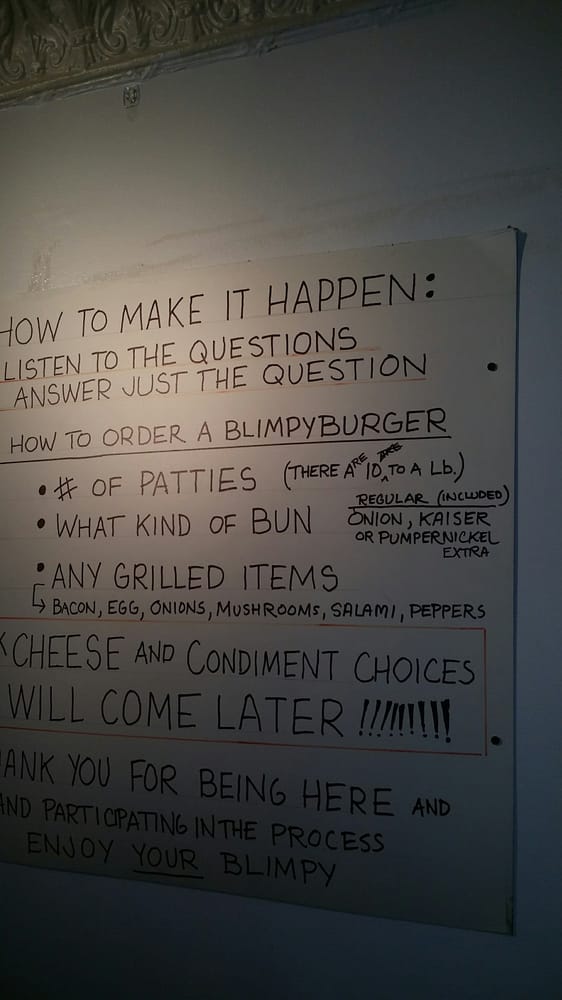 HOW TO MAKE IT HAPPEN:
LISTEN TO THE QUESTIONS
ANSWER JUST THE QUESTION
HOW TO ORDER A BLIMPYBURGER
• # OF PATTIES (THERE ARE 10 TO A Lb.)
• WHAT KIND OF BUN
REGULAR (INCLUDED)
ONION, KAISER
OR PUMPERNICKEL
EXTRA
• ANY GRILLED ITEMS
↳ BACON, EGG, ONIONS, MUSHROOMS, SALAMI, PEPPERS
CHEESE AND CONDIMENT CHOICES
WILL COME LATER !!!!!!!!!!
ANK YOU FOR BEING HERE AND
AND PARTICIPATING IN THE PROCESS
ENJOY YOUR BLIMPY